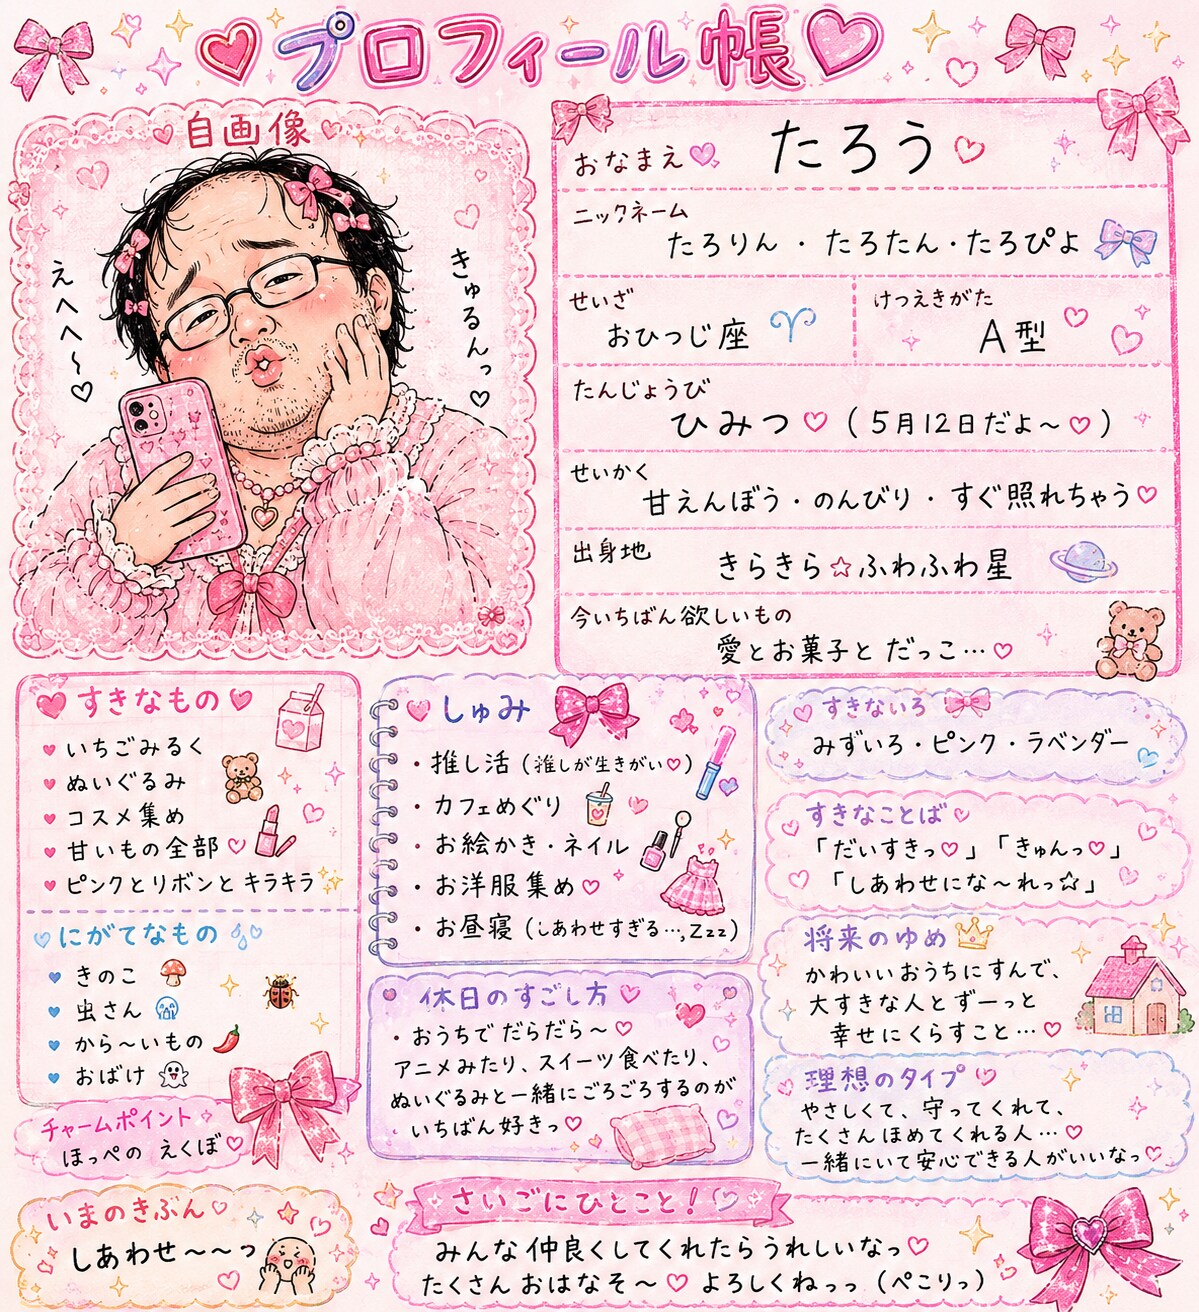 プロフィール帳
自画像
えへへ〜♡
きゅるんっ♡
おなまえ♡ たろう♡
ニックネーム
たろりん・たろたん・たろぴよ
せいざ
おひつじ座
けつえきがた
A型
たんじょうび
ひみつ♡(5月12日だよ〜♡)
せいかく
甘えんぼう・のんびり・すぐ照れちゃう♡
出身地
きらきら☆ふわふわ星
今いちばん欲しいもの
愛とお菓子とだっこ…♡
すきなもの
いちごみるく
ぬいぐるみ
コスメ集め
甘いもの全部♡
ピンクとリボンとキラキラ
にがてなもの
きのこ
虫さん
から〜いもの
おばけ
チャームポイント
ほっぺの えくぼ♡
いまのきぶん♡
しあわせ〜〜っ
しゅみ
・推し活(推しが生きがい♡)
・カフェめぐり
・お絵かき・ネイル
・お洋服集め♡
・お昼寝(しあわせすぎる…,Zzz)
休日のすごし方♡
・おうちでだらだら〜♡
アニメみたり、スイーツ食べたり、
ぬいぐるみと一緒にごろごろするのが
いちばん好きっ♡
すきないろ
みずいろ・ピンク・ラベンダー
すきなことば♡
「だいすきっ♡」「きゅんっ♡」
「しあわせにな〜れっ☆」
将来のゆめ
かわいいおうちにすんで、
大すきな人とずーっと
幸せにくらすこと…♡
理想のタイプ♡
やさしくて、守ってくれて、
たくさんほめてくれる人…♡
一緒にいて安心できる人がいいなっ♡
さいごにひとこと!♡
みんな仲良くしてくれたらうれしいなっ♡
たくさんおはなそ〜♡よろしくねっっ(ぺこりっ)